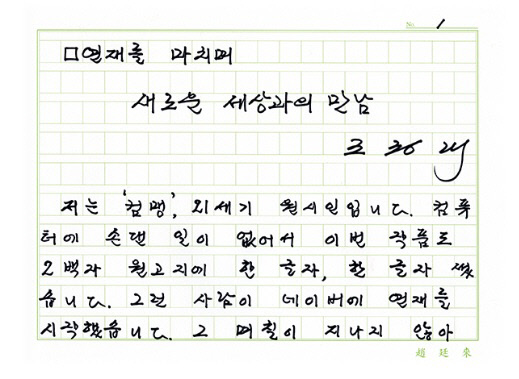 No. 1
□연재를 마치며
새로운 세상과의 만남
조정래
저는 '컴맹', 21세기 원시인입니다. 컴퓨
터에 손댄 일이 없어서 이번 작품도
2백자 원고지에 한 글자, 한 글자 썼
습니다. 그런 사람이 네이버에 연재를
시작했습니다. 그 며칠이 지나지 않아
趙廷來